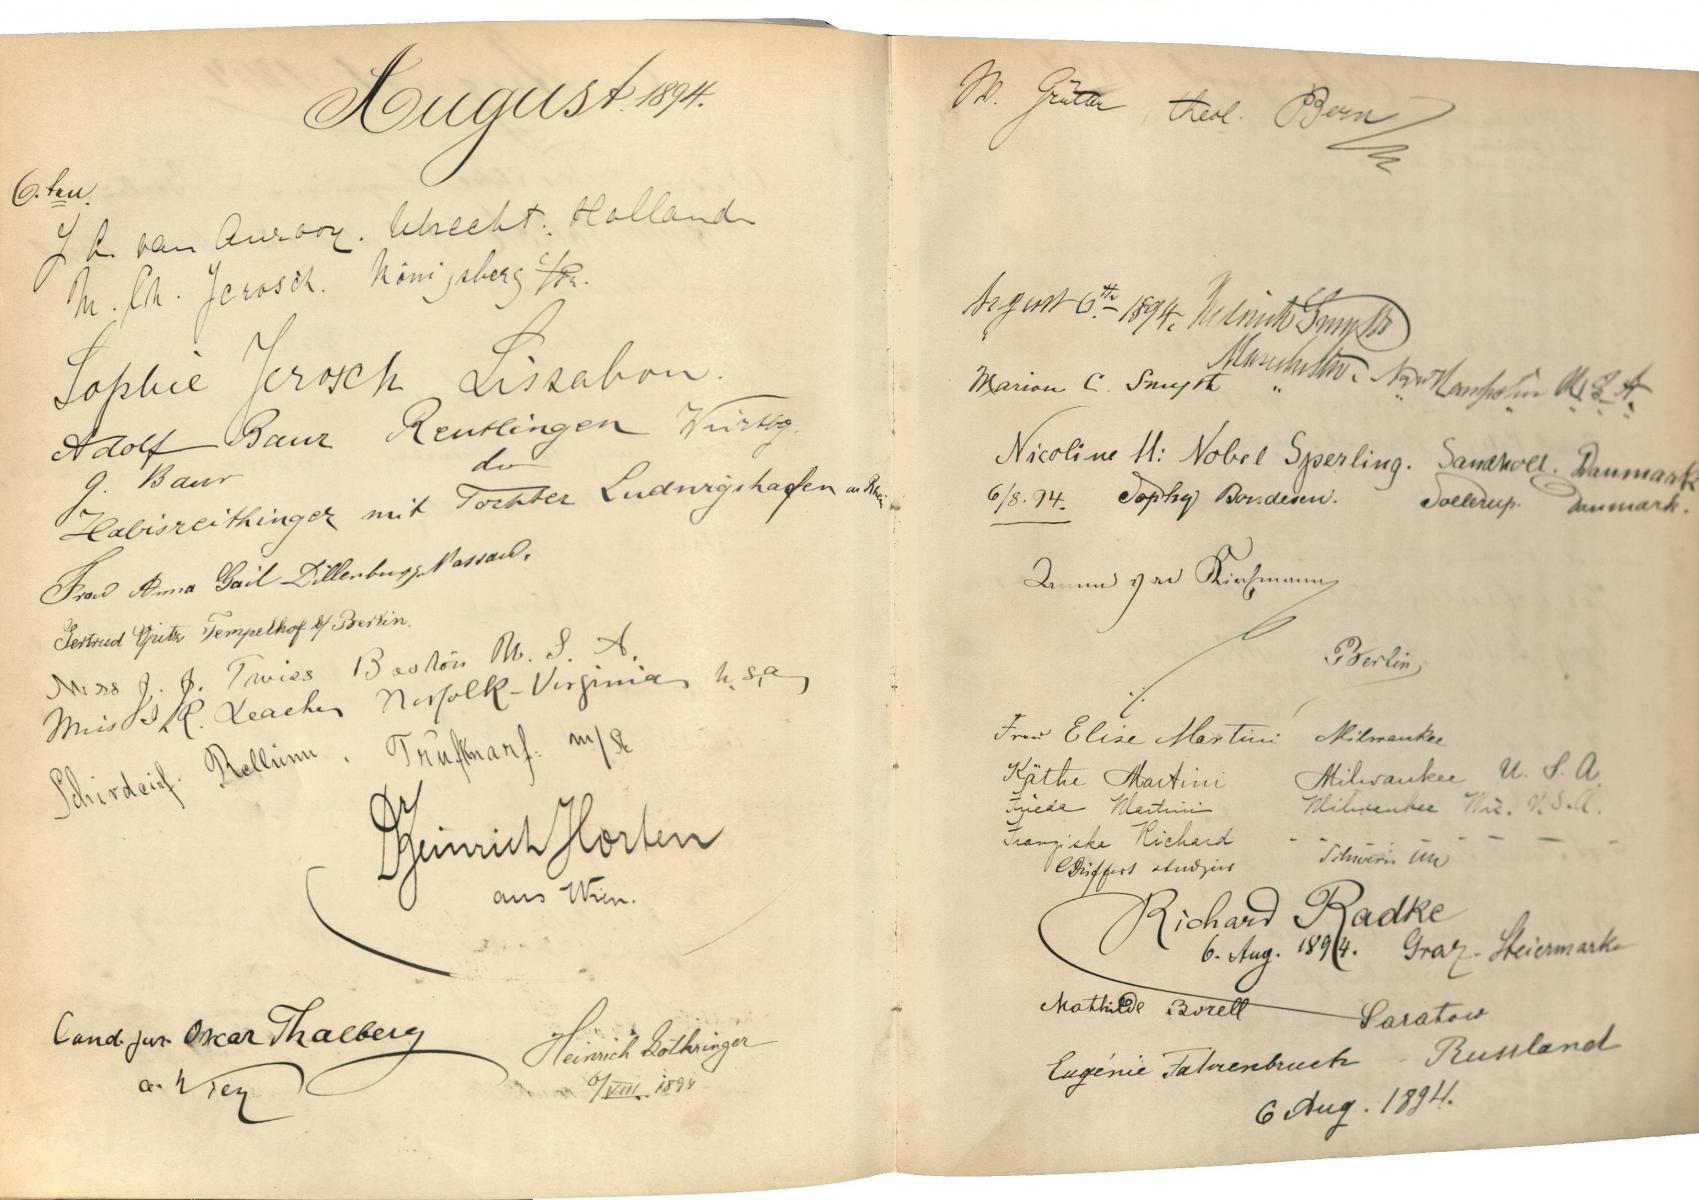 August. 1894.
6. ten.
J. R. van Aurooy. Utrecht. Holland
M. Ch. Jerosch. Königsberg i/Pr.
Sophie Jerosch Lissabon.
Adolf Baur Reutlingen Württbg.
G. Baur do
Habisreithinger mit Tochter Ludwigshafen a. Rhein
Frau Anna Gail Dillenburg, Nassau.
Gertrud Opitz Tempelhof b/ Berlin.
Miss J. J. Twiss Boston M. S. A.
Miss S. R. Leache, Norfolk-Virginia, U.S.A,
Heinrich Horten
aus Wien.
Cand. jur. Oskar Thalberg
a. Wien
Heinrich Lothringer
6/VIII. 1894
W. Grütter, theol. Bern
August 6th 1894, Smyth
Manchester, New Hampshire U.S.A.
Marion C. Smyth " " " " " "
Nicoline M: Nobel Sperling. Sandholt. Danmark
6/8. 94. Sophy Bondesen. Tollerup. Danmark.
von Kirchmann
Berlin,
Frau Elise Martini Milwaukee
Käthe Martini Milwaukee U. S. A.
Frieda Martini Milwaukee Wis. U.S.A.
Franziska Richard - - - - - -
Schwerin i/M
Richard Radke
6. Aug. 1894. Graz - Steiermark
Mathilde Borell Saratow
Eugénie Fahrenbruch - Russland
6 Aug. 1894.